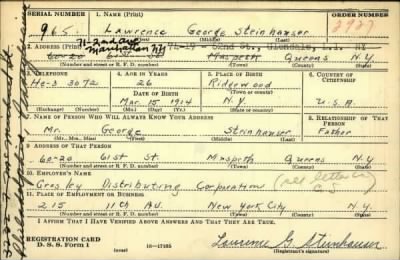 SERIAL NUMBER 1. NAME (Print) ORDER NUMBER
965 Lawrence George Steinhauser
(First) (Middle) (Last)
2. ADDRESS (Print)
Manhattan NY 71-19 - 62nd St., Glendale, L.I. NY
60-20 61st St. Maspeth Queens N.Y.
(Number and street or R. F. D. number) (Town) (County) (State)
3. TELEPHONE 4. AGE IN YEARS 5. PLACE OF BIRTH 6. COUNTRY OF CITIZENSHIP
He-3 3072 26 Ridgewood
DATE OF BIRTH (Town or county)
Mar. 15 1914 N.Y. U.S.A.
(Exchange) (Number) (Mo.) (Day) (Yr.) (State or country)
7. NAME OF PERSON WHO WILL ALWAYS KNOW YOUR ADDRESS 8. RELATIONSHIP OF THAT PERSON
Mr. George Steinhauser Father
(Mr., Mrs., Miss) (First) (Middle) (Last)
9. ADDRESS OF THAT PERSON
60-20 61st St. Maspeth Queens N.Y
(Number and street or R. F. D. number) (Town) (County) (State)
10. EMPLOYER'S NAME
Crosley Distributing Corporation
11. PLACE OF EMPLOYMENT OR BUSINESS
215 11th Av. New York City N.Y.
(Number and street or R. F. D. number) (Town) (County) (State)
I AFFIRM THAT I HAVE VERIFIED ABOVE ANSWERS AND THAT THEY ARE TRUE.
REGISTRATION CARD
D. S. S. Form 1 (over) 16—17105 Lawrence G. Steinhauser
(Registrant's signature)